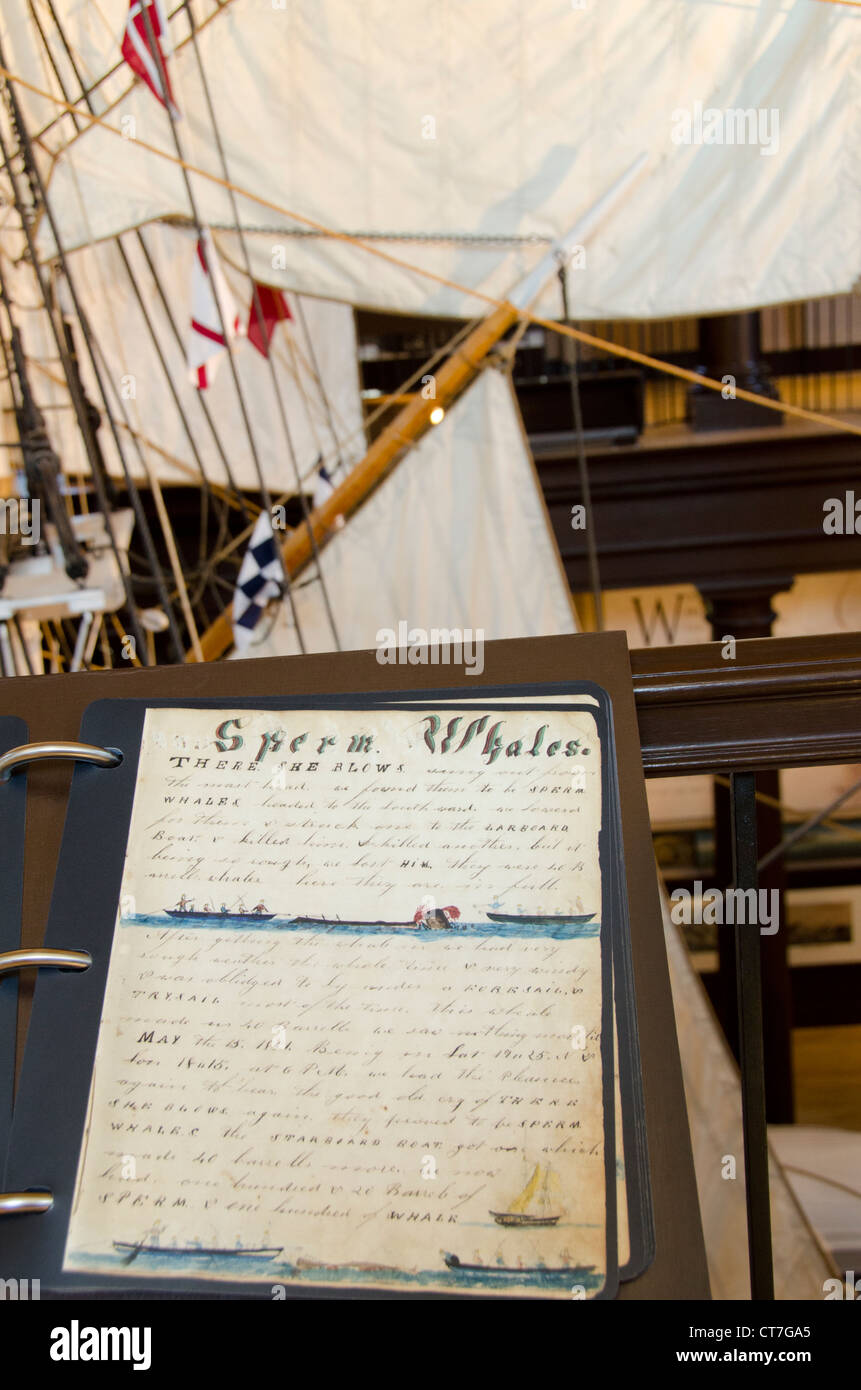 Sperm Whales.
THERE SHE BLOWS sung out from
the mast head we found them to be SPERM
WHALES headed to the South ward. we lowerd
for them & struck one to the LARBOARD
Boat & killed him & killed another, but it
being so rough, we lost HIM. they were 40 B
arrell whales here they are in full
After getting the whale in we had very
rough weather the whole time & very windy
& was oblidged to ly under a FORESAIL &
TRYSAIL most of the time. This whale
made us 40 Barrells we saw nothing more til
MAY the 15. Being in Lat 19.25. N &
Lon at 6 P.M. we had the Pleasure
again to hear the good old cry of THERE
SHE BLOWS again they proved to be SPERM
WHALES the STARBOARD BOAT got one which
made 40 barrells more. we now
had one hundred & 20 Barrels of
SPERM & one hundred of WHALE
W
alamy
a
alamy
Image ID: CT7GA5
www.alamy.com